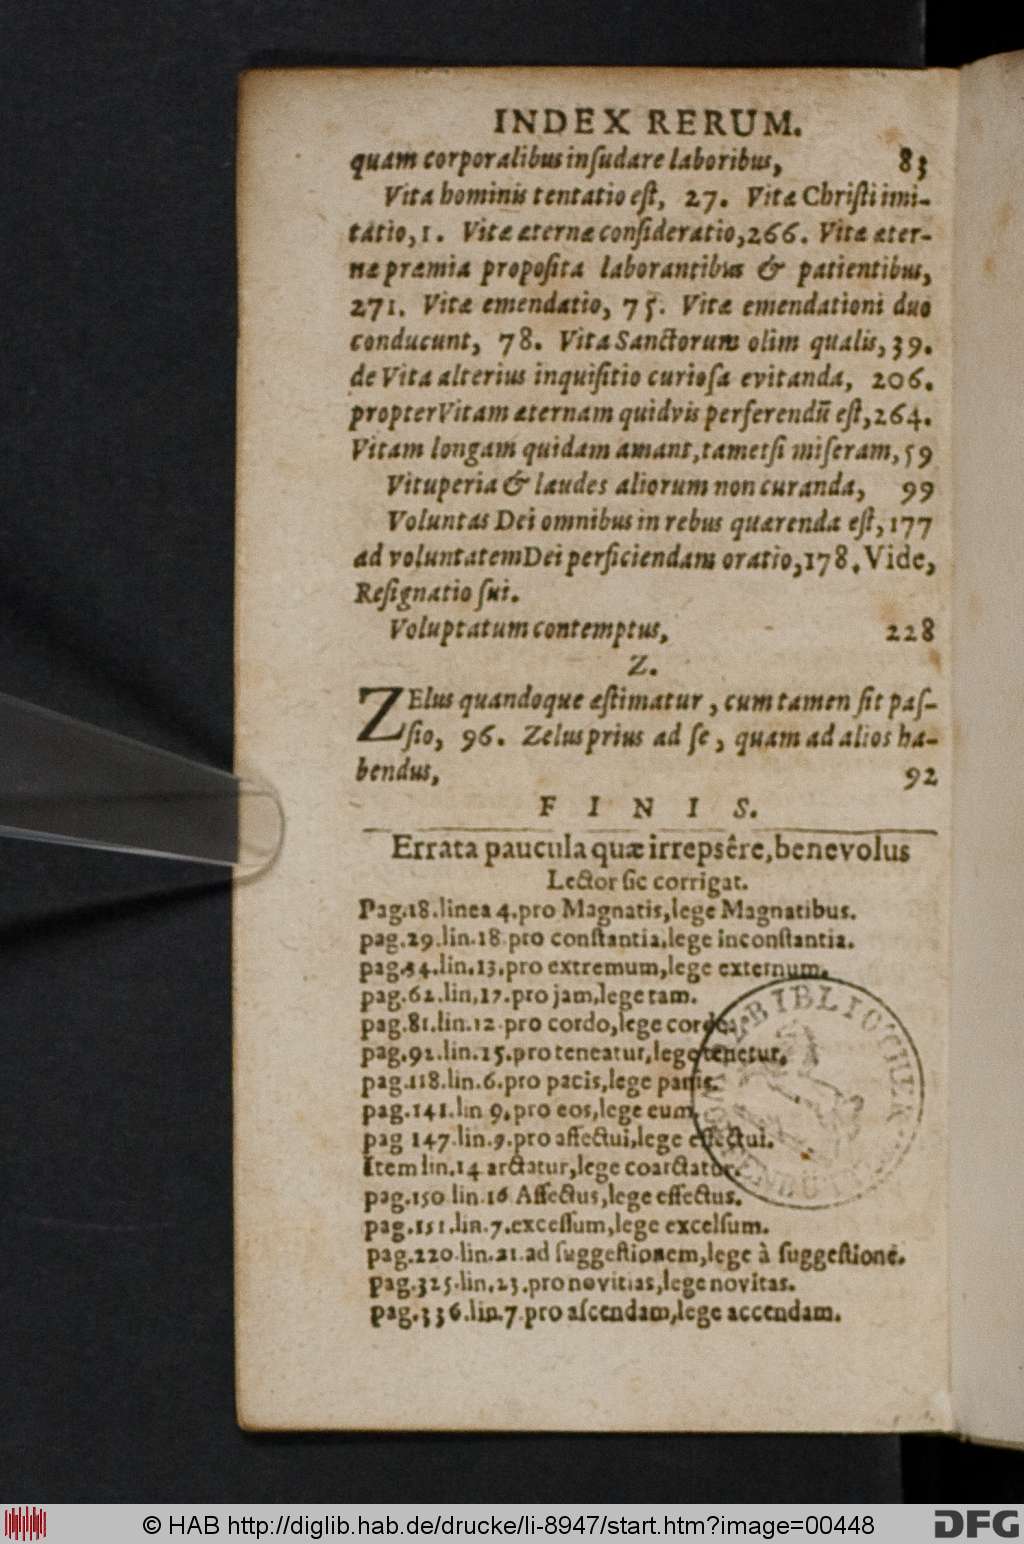 INDEX RERUM.
quam corporalibus inſudare laboribus, 83
Vita hominis tentatio eſt, 27. Vitæ Chriſti imi-
tatio, 1. Vitæ æternæ conſideratio, 266. Vitæ æter-
næ præmia propoſita laborantibus & patientibus,
271. Vitæ emendatio, 75. Vitæ emendationi duo
conducunt, 78. Vita Sanctorum olim qualis, 39.
de Vita alterius inquiſitio curioſa evitanda, 206.
propter Vitam æternam quidvis perferendū eſt, 264.
Vitam longam quidam amant, tametſi miſeram, 59
Vituperia & laudes aliorum non curanda, 99
Voluntas Dei omnibus in rebus quærenda eſt, 177
ad voluntatem Dei perficiendam oratio, 178. Vide,
Reſignatio ſui.
Voluptatum contemptus, 228
Z.
ZElus quandoque æſtimatur, cum tamen ſit paſ-
ſio, 96. Zelus prius ad ſe, quam ad alios ha-
bendus, 92
FINIS.
Errata paucula quæ irrepsêre, benevolus
Lector ſic corrigat.
Pag.18.linea 4.pro Magnatis,lege Magnatibus.
pag.29.lin.18.pro conſtantia,lege inconſtantia.
pag.54.lin.13.pro extremum,lege externum.
pag.62.lin.17.pro jam,lege tam.
pag.81.lin.12.pro cordo,lege corde.
pag.92.lin.15.pro teneatur,lege tenetur.
pag.118.lin.6.pro pacis,lege panis.
pag.141.lin 9.pro eos,lege eum.
pag 147.lin.9.pro affectui,lege effectui.
Item lin.14 arctatur,lege coarctatur.
pag.150 lin.16 Affectus,lege effectus.
pag.151.lin.7.exceſſum,lege excelſum.
pag.220.lin.21.ad ſuggeſtionem,lege à ſuggeſtione.
pag.325.lin.23.pro novitias,lege novitas.
pag.336.lin.7.pro aſcendam,lege accendam.
© HAB http://diglib.hab.de/drucke/li-8947/start.htm?image=00448
DFG